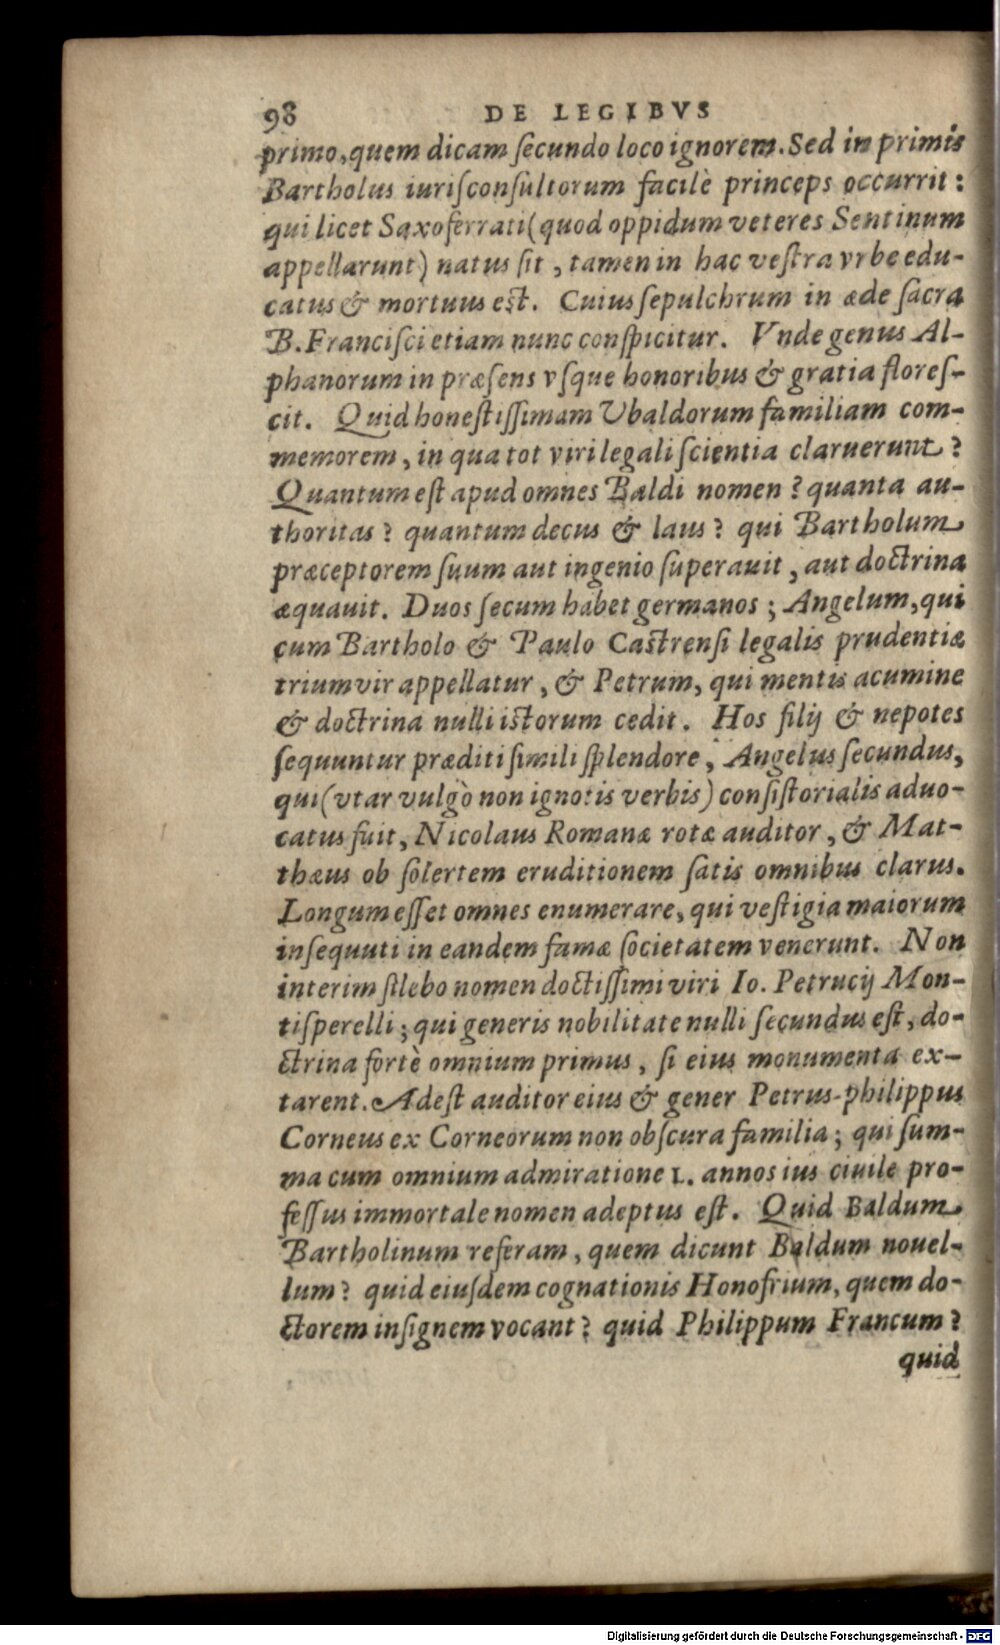 98 DE LEGIBVS
primo, quem dicam ſecundo loco ignorem. Sed in primis
Bartholus iuriſconſultorum facilè princeps occurrit:
qui licet Saxoferrati (quod oppidum veteres Sentinum
appellarunt) natus ſit, tamen in hac veſtra vrbe edu-
catus & mortuus eſt. Cuius ſepulchrum in æde ſacra
B. Franciſci etiam nunc conſpicitur. Vnde genus Al-
phanorum in præſens vſque honoribus & gratia floreſ-
cit. Quid honeſtiſſimam Vbaldorum familiam com-
memorem, in qua tot viri legali ſcientia claruerunt?
Quantum eſt apud omnes Baldi nomen? quanta au-
thoritas? quantum decus & laus? qui Bartholum
præceptorem ſuum aut ingenio ſuperauit, aut doctrina
æquauit. Duos ſecum habet germanos; Angelum, qui
cum Bartholo & Paulo Caſtrenſi legalis prudentiæ
triumvir appellatur, & Petrum, qui mentis acumine
& doctrina nulli iſtorum cedit. Hos filij & nepotes
ſequuntur præditi ſimili ſplendore, Angelus ſecundus,
qui (vtar vulgò non ignotis verbis) conſiſtorialis aduo-
catus fuit, Nicolaus Romanæ rotæ auditor, & Mat-
thæus ob ſolertem eruditionem ſatis omnibus clarus.
Longum eſſet omnes enumerare, qui veſtigia maiorum
inſequuti in eandem famæ ſocietatem venerunt. Non
interim ſilebo nomen doctiſſimi viri Io. Petrucij Mon-
tiſperelli; qui generis nobilitate nulli ſecundus eſt, do-
ctrina fortè omnium primus, ſi eius monumenta ex-
tarent. Adeſt auditor eius & gener Petrus-philippus
Corneus ex Corneorum non obſcura familia; qui ſum-
ma cum omnium admiratione L. annos ius ciuile pro-
feſſus immortale nomen adeptus eſt. Quid Baldum
Bartholinum referam, quem dicunt Baldum nouel-
lum? quid eiuſdem cognationis Honofrium, quem do-
ctorem inſignem vocant? quid Philippum Francum?
quid
Digitalisierung gefördert durch die Deutsche Forschungsgemeinschaft - DFG